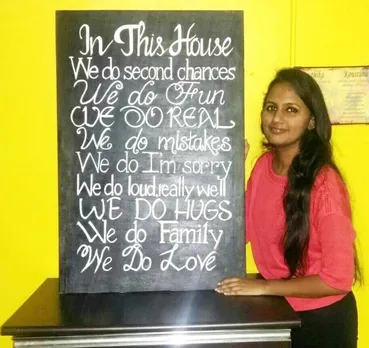 In This House
We do second chances
We do Fun
WE DO REAL
We do mistakes
We do Im sorry
We do loud really well
WE DO HUGS
We do Family
We Do Love